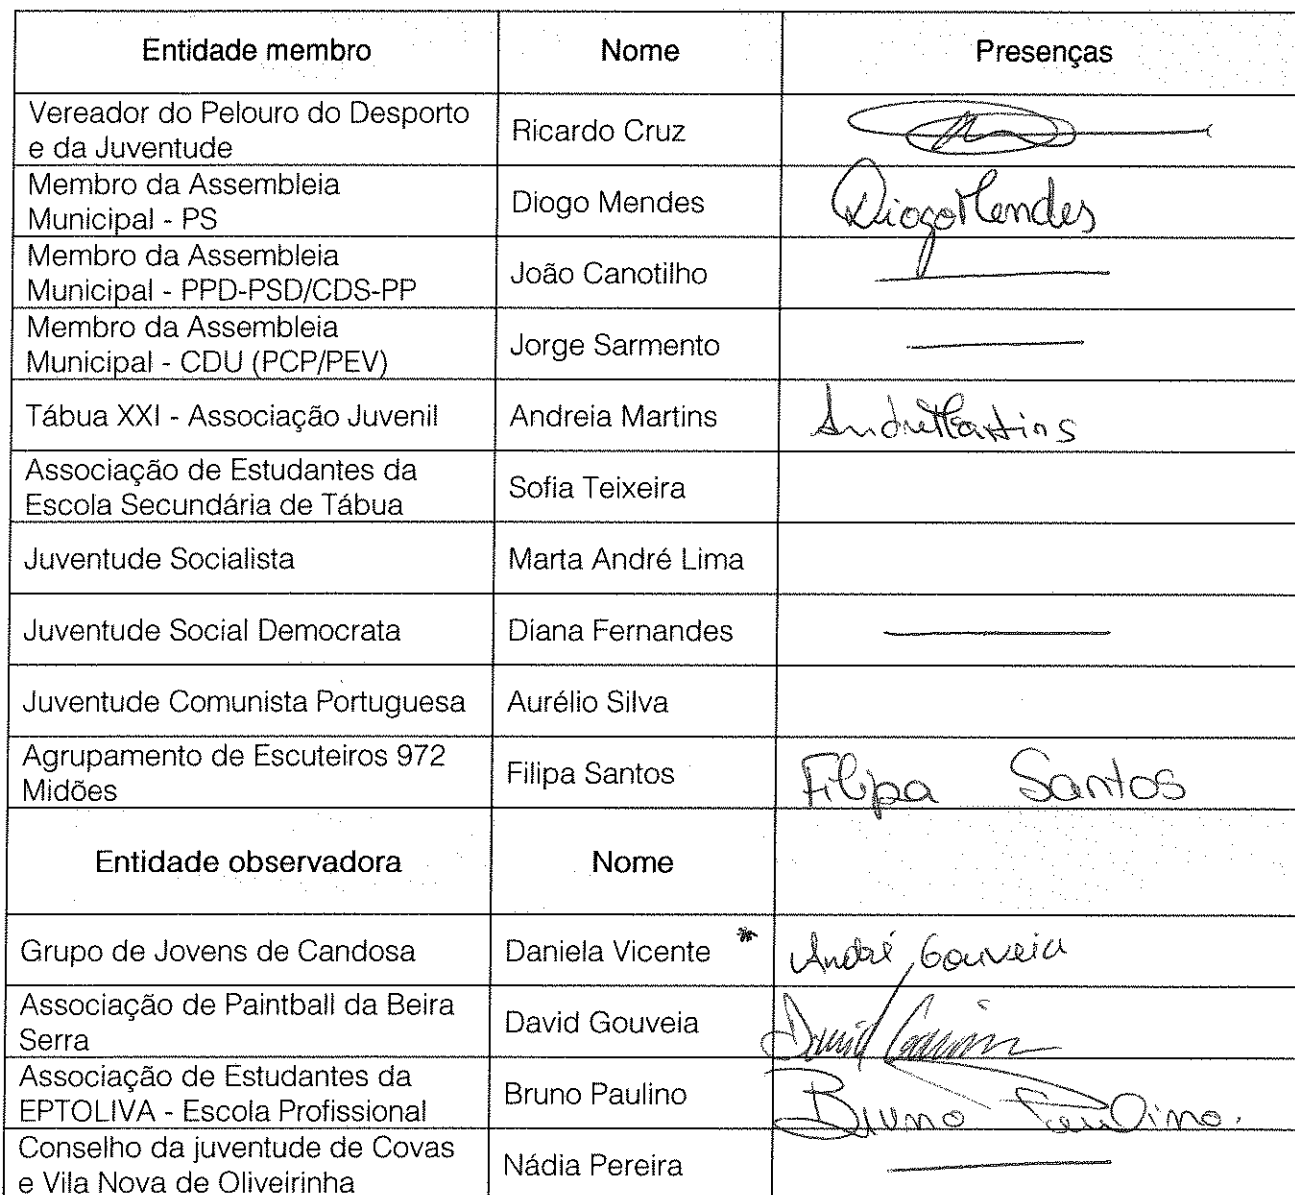 Entidade membro Nome Presenças
Vereador do Pelouro do Desporto
e da Juventude
Ricardo Cruz
Membro da Assembleia
Municipal - PS
Diogo Mendes
Diogo Mendes
Membro da Assembleia
Municipal - PPD-PSD/CDS-PP
João Canotilho
Membro da Assembleia
Municipal - CDU (PCP/PEV)
Jorge Sarmento
Tábua XXI - Associação Juvenil
Andreia Martins
Associação de Estudantes da
Escola Secundária de Tábua
Sofia Teixeira
Juventude Socialista
Marta André Lima
Juventude Social Democrata
Diana Fernandes
Juventude Comunista Portuguesa
Aurélio Silva
Agrupamento de Escuteiros 972
Midões
Filipa Santos
Filipa Santos
Entidade observadora Nome
Grupo de Jovens de Candosa
Daniela Vicente *
André Gouveia
Associação de Paintball da Beira
Serra
David Gouveia
David Gouveia
Associação de Estudantes da
EPTOLIVA - Escola Profissional
Bruno Paulino
Bruno Paulino.
Conselho da juventude de Covas
e Vila Nova de Oliveirinha
Nádia Pereira